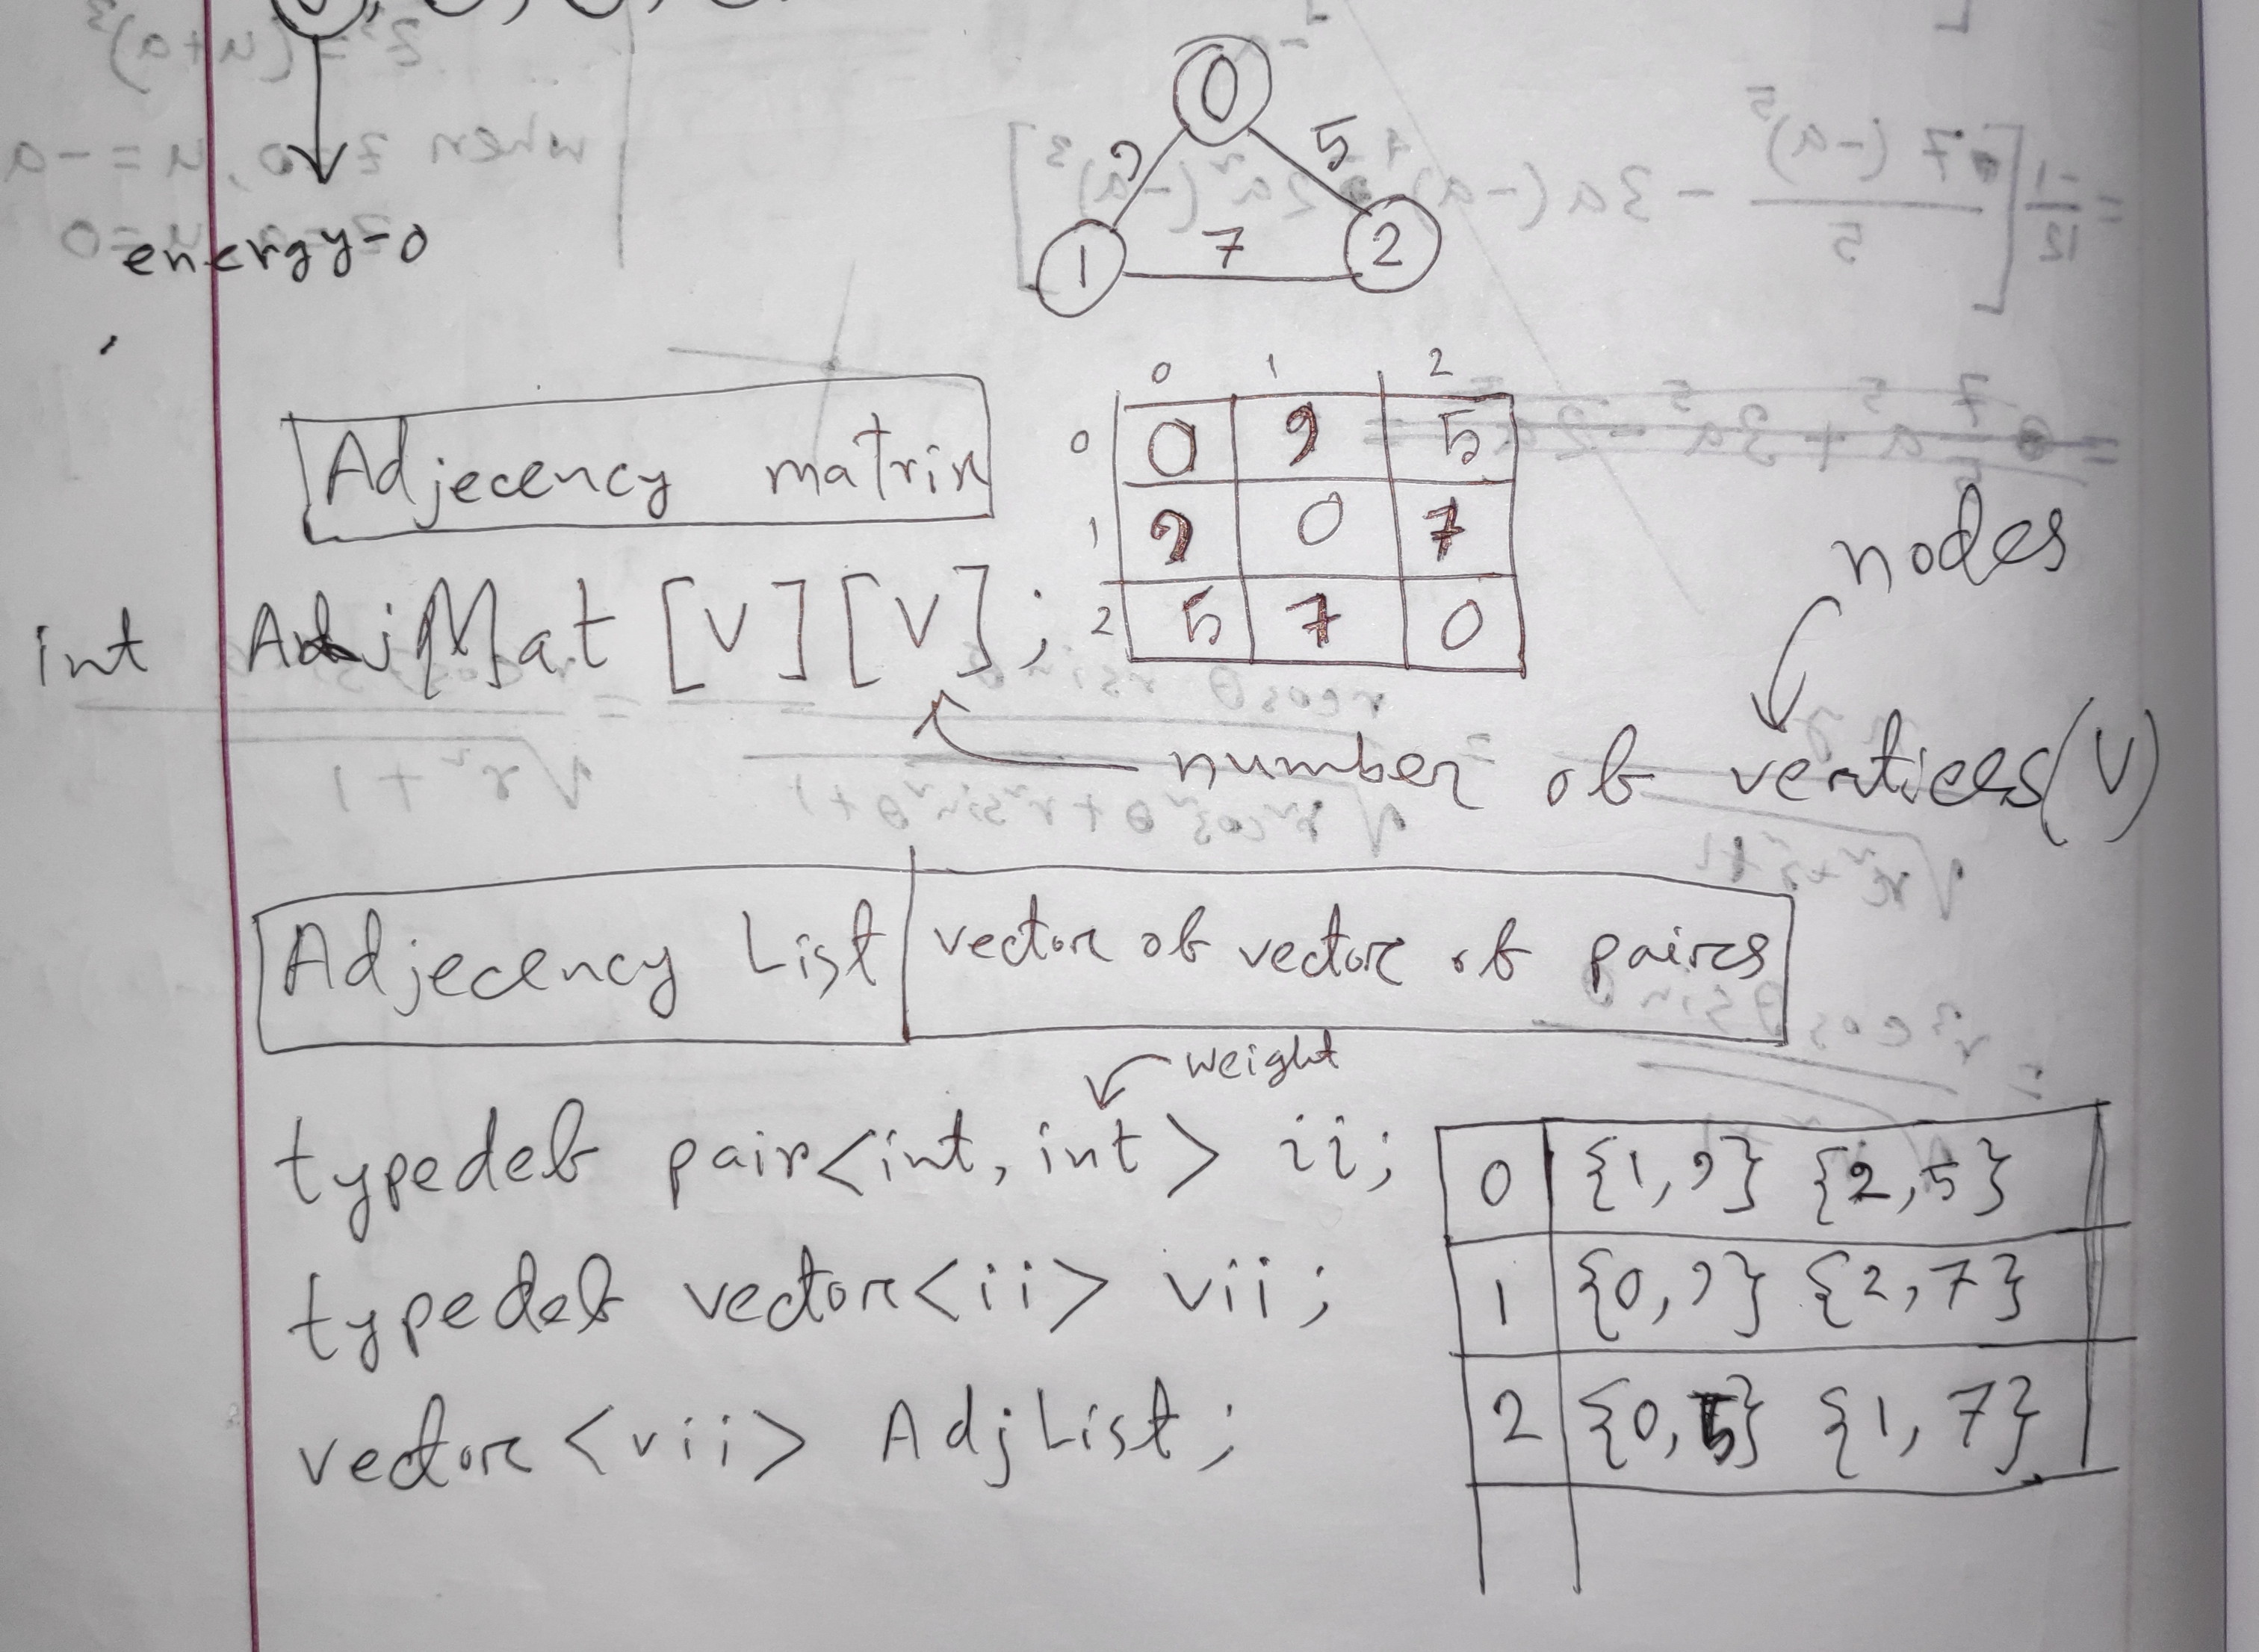 0
9 5
1 7 2
energy=0
0 1 2
Adjecency matrix
0 0 9 5
1 9 0 7
2 5 7 0
int AdjMat [V][V];
nodes
number of vertices(V)
Adjecency List vector of vector of pairs
weight
typedef pair<int, int> ii;
typedef vector<ii> vii;
vector<vii> AdjList;
0 {1,9} {2,5}
1 {0,9} {2,7}
2 {0,5} {1,7}